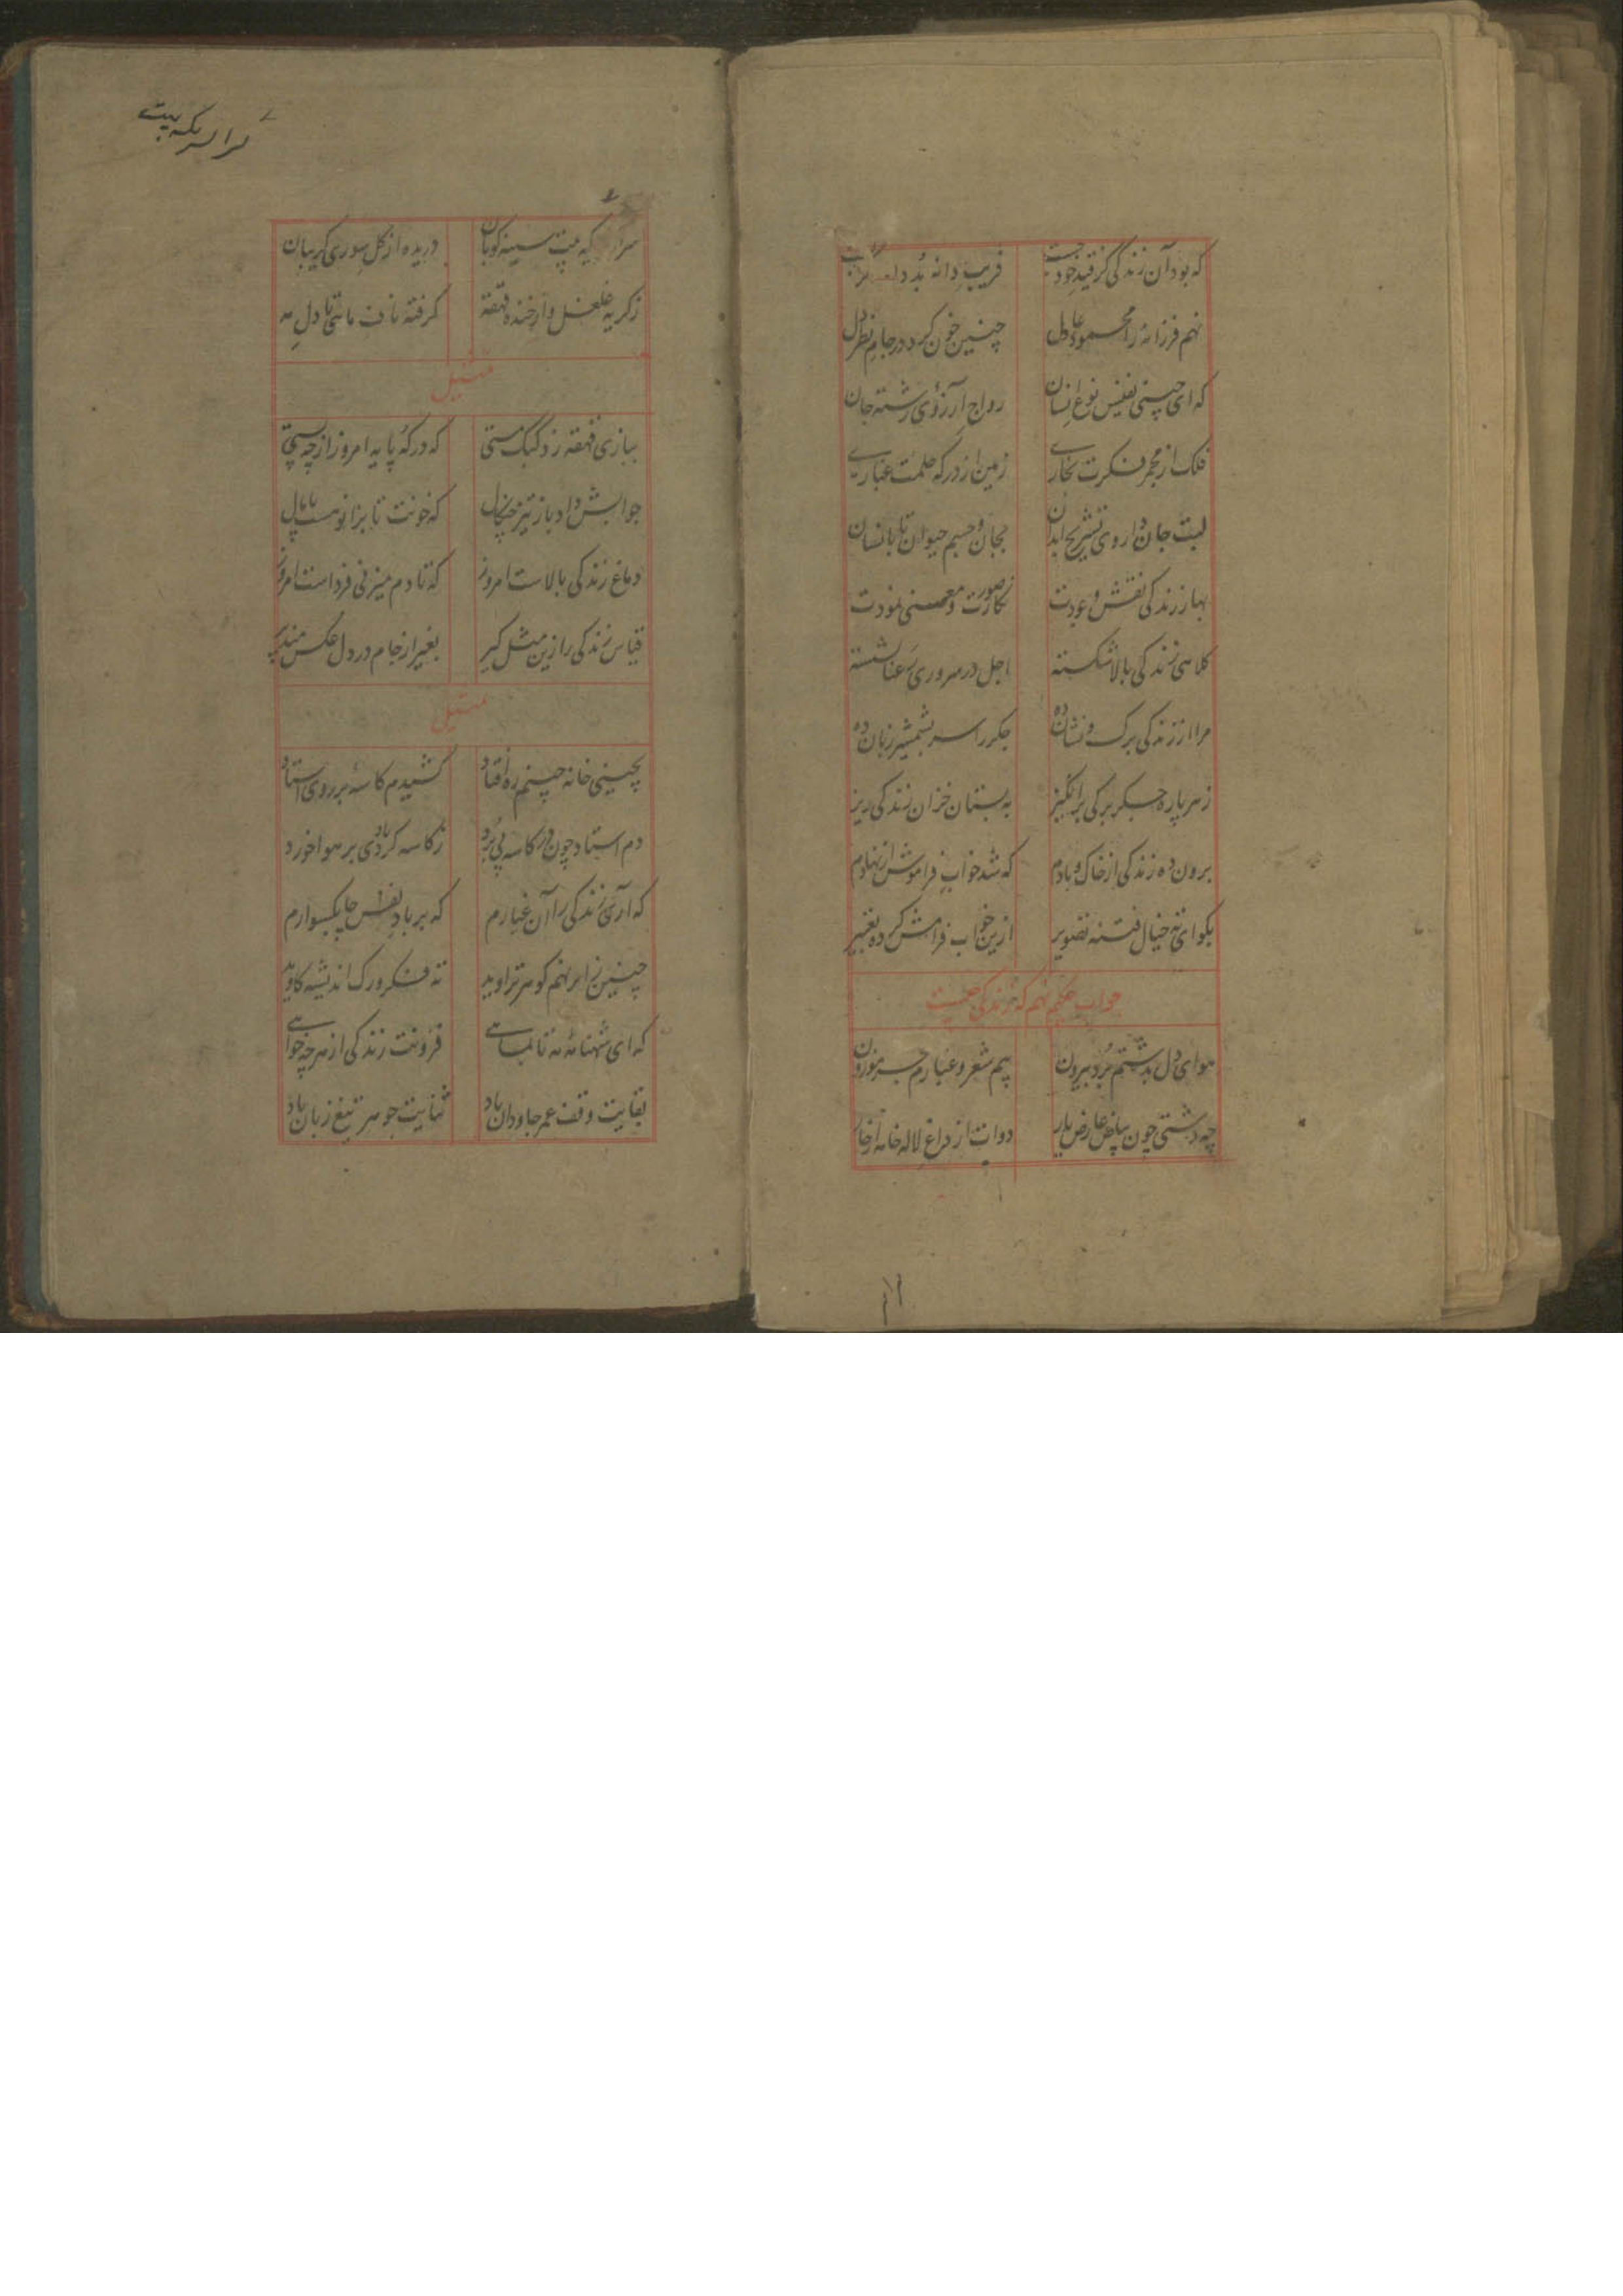 که بود آن زندگی کز قید خود جست فریب دانه بد
نهم فرزانه را محمود عادل چنین خون کرد در جام نظر دل
که ای چینی نفیس نوع انسان رواج آرزوی رشته جان
فلک از مجمر فکرت بخاری زمین از درکه حلمت غباری
لبت جان داروی تشریح ابدان بجان و جسم حیوان تا بانسان
بهار زندگی نقش وعودت ز صورت و معنی نمودت
کلاهی زندگی بالا شکسته اجل در سروری رعنا نشسته
مرا از زندگی برگ و نشان ده جگر را سر بشمشیر زبان ده
ز هر پاره جگر برگی برانگیز به بستان خزان زندگی ریز
برون ده زندگی از خاک و بادم که شد خواب فراموش از نهادم
بکو ای ته خیال فتنه تصویر ازین خواب فرامش کرده تعبیر
جواب حکیم نهم که زندگی چیست
هوای دل بدشتم برد بیرون پیم شعر و غبارم جسر موزون
چه دشتی چون بیاض عارض یار دوات از داغ لاله خامه از خار
سینه کوبان دریده از گل سوری گریبان
ز گریه غلغل و از خنده قهقه گرفته ناف ماتی تا دل مه
تمثیل
ببازی قهقه زد کبک مستی که در که پایه امروز از چه پستی
جوابش داد باز تیز چنگال که خونت تا بزانو هست پامال
دماغ زندگی بالاست امروز که تا دم میزنی فرداست امروز
قیاس زندگی را زین مثل گیر بغیر از جام در دل عکس مپذیر
تمثیل
بچینی خانه چینم ره افتاد کشیدم کاسه بر روی استاد
دم استاد چون در کاسه پی برد ز کاسه کرد بادی بر هوا خورد
که آری زندگی را آن غبارم که بر باد نفس چابکسوارم
چنین ز ابر نهم گوهر تراوید ته فکر و رگ اندیشه کاوید
که ای شهنامه مه تا بماهی فزونت زندگی از هر چه خواهی
بقایت وقف عمر جاودان باد ثنایت جوهر تیغ زبان باد